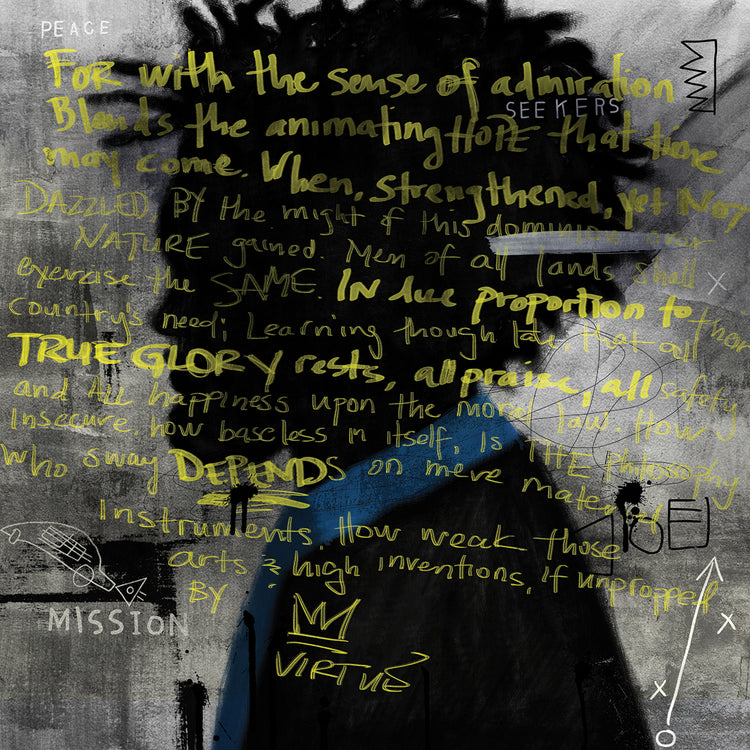 PEACE
For with the sense of admiration
SEEKERS
Blends the animating HOPE that time
may come. When, strengthened, yet NOT
DAZZLED, BY the might of this dominion over
NATURE gained. Men of all lands shall
exercise the SAME. IN due proportion to their
country's need; Learning though late, that all
TRUE GLORY rests, all praise, all safety
and All happiness upon the moral law. How
Insecure, how baseless in itself, Is THE Philosophy
Who sway DEPENDS on mere material
Instruments. How weak those
arts & high inventions, If unpropped
BY
VIRTUE
MISSION
X
X
X